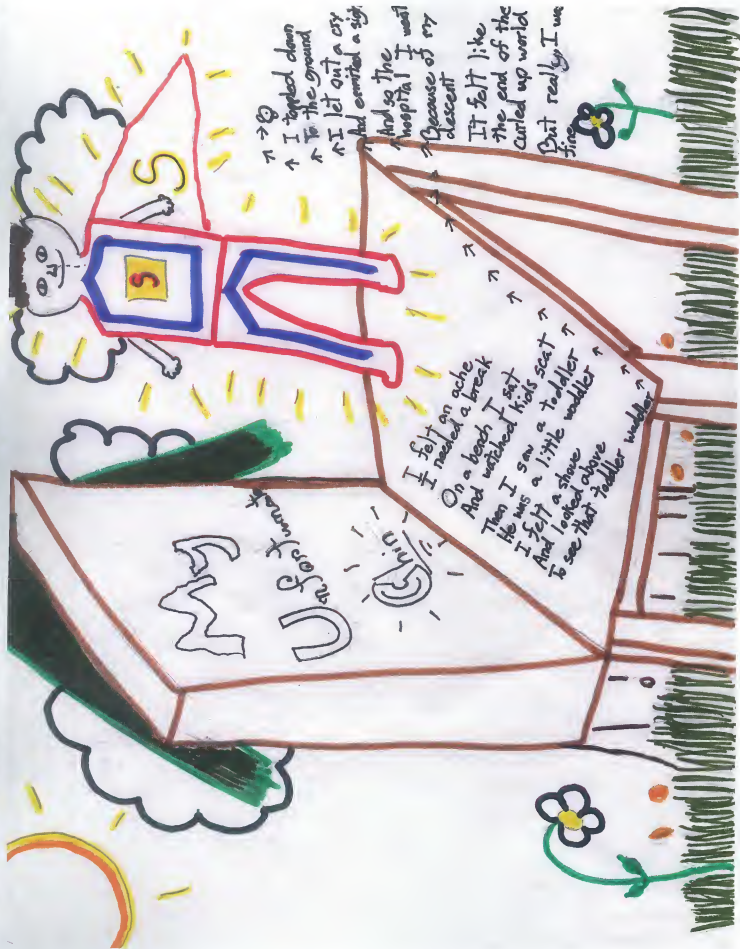 My
Unfortunate
Chin
I felt an ache
I needed a break
On a bench, I sat
And watched kids scat
Then I saw a toddler
He was a little waddler
I felt a shove
And looked above
To see that toddler waddler
I toppled down
To the ground
I let out a cry
And emitted a sigh
And so the
hospital I went
Because of my
descent
It felt like
the end of the
curled up world
But really I was
fine
S
S